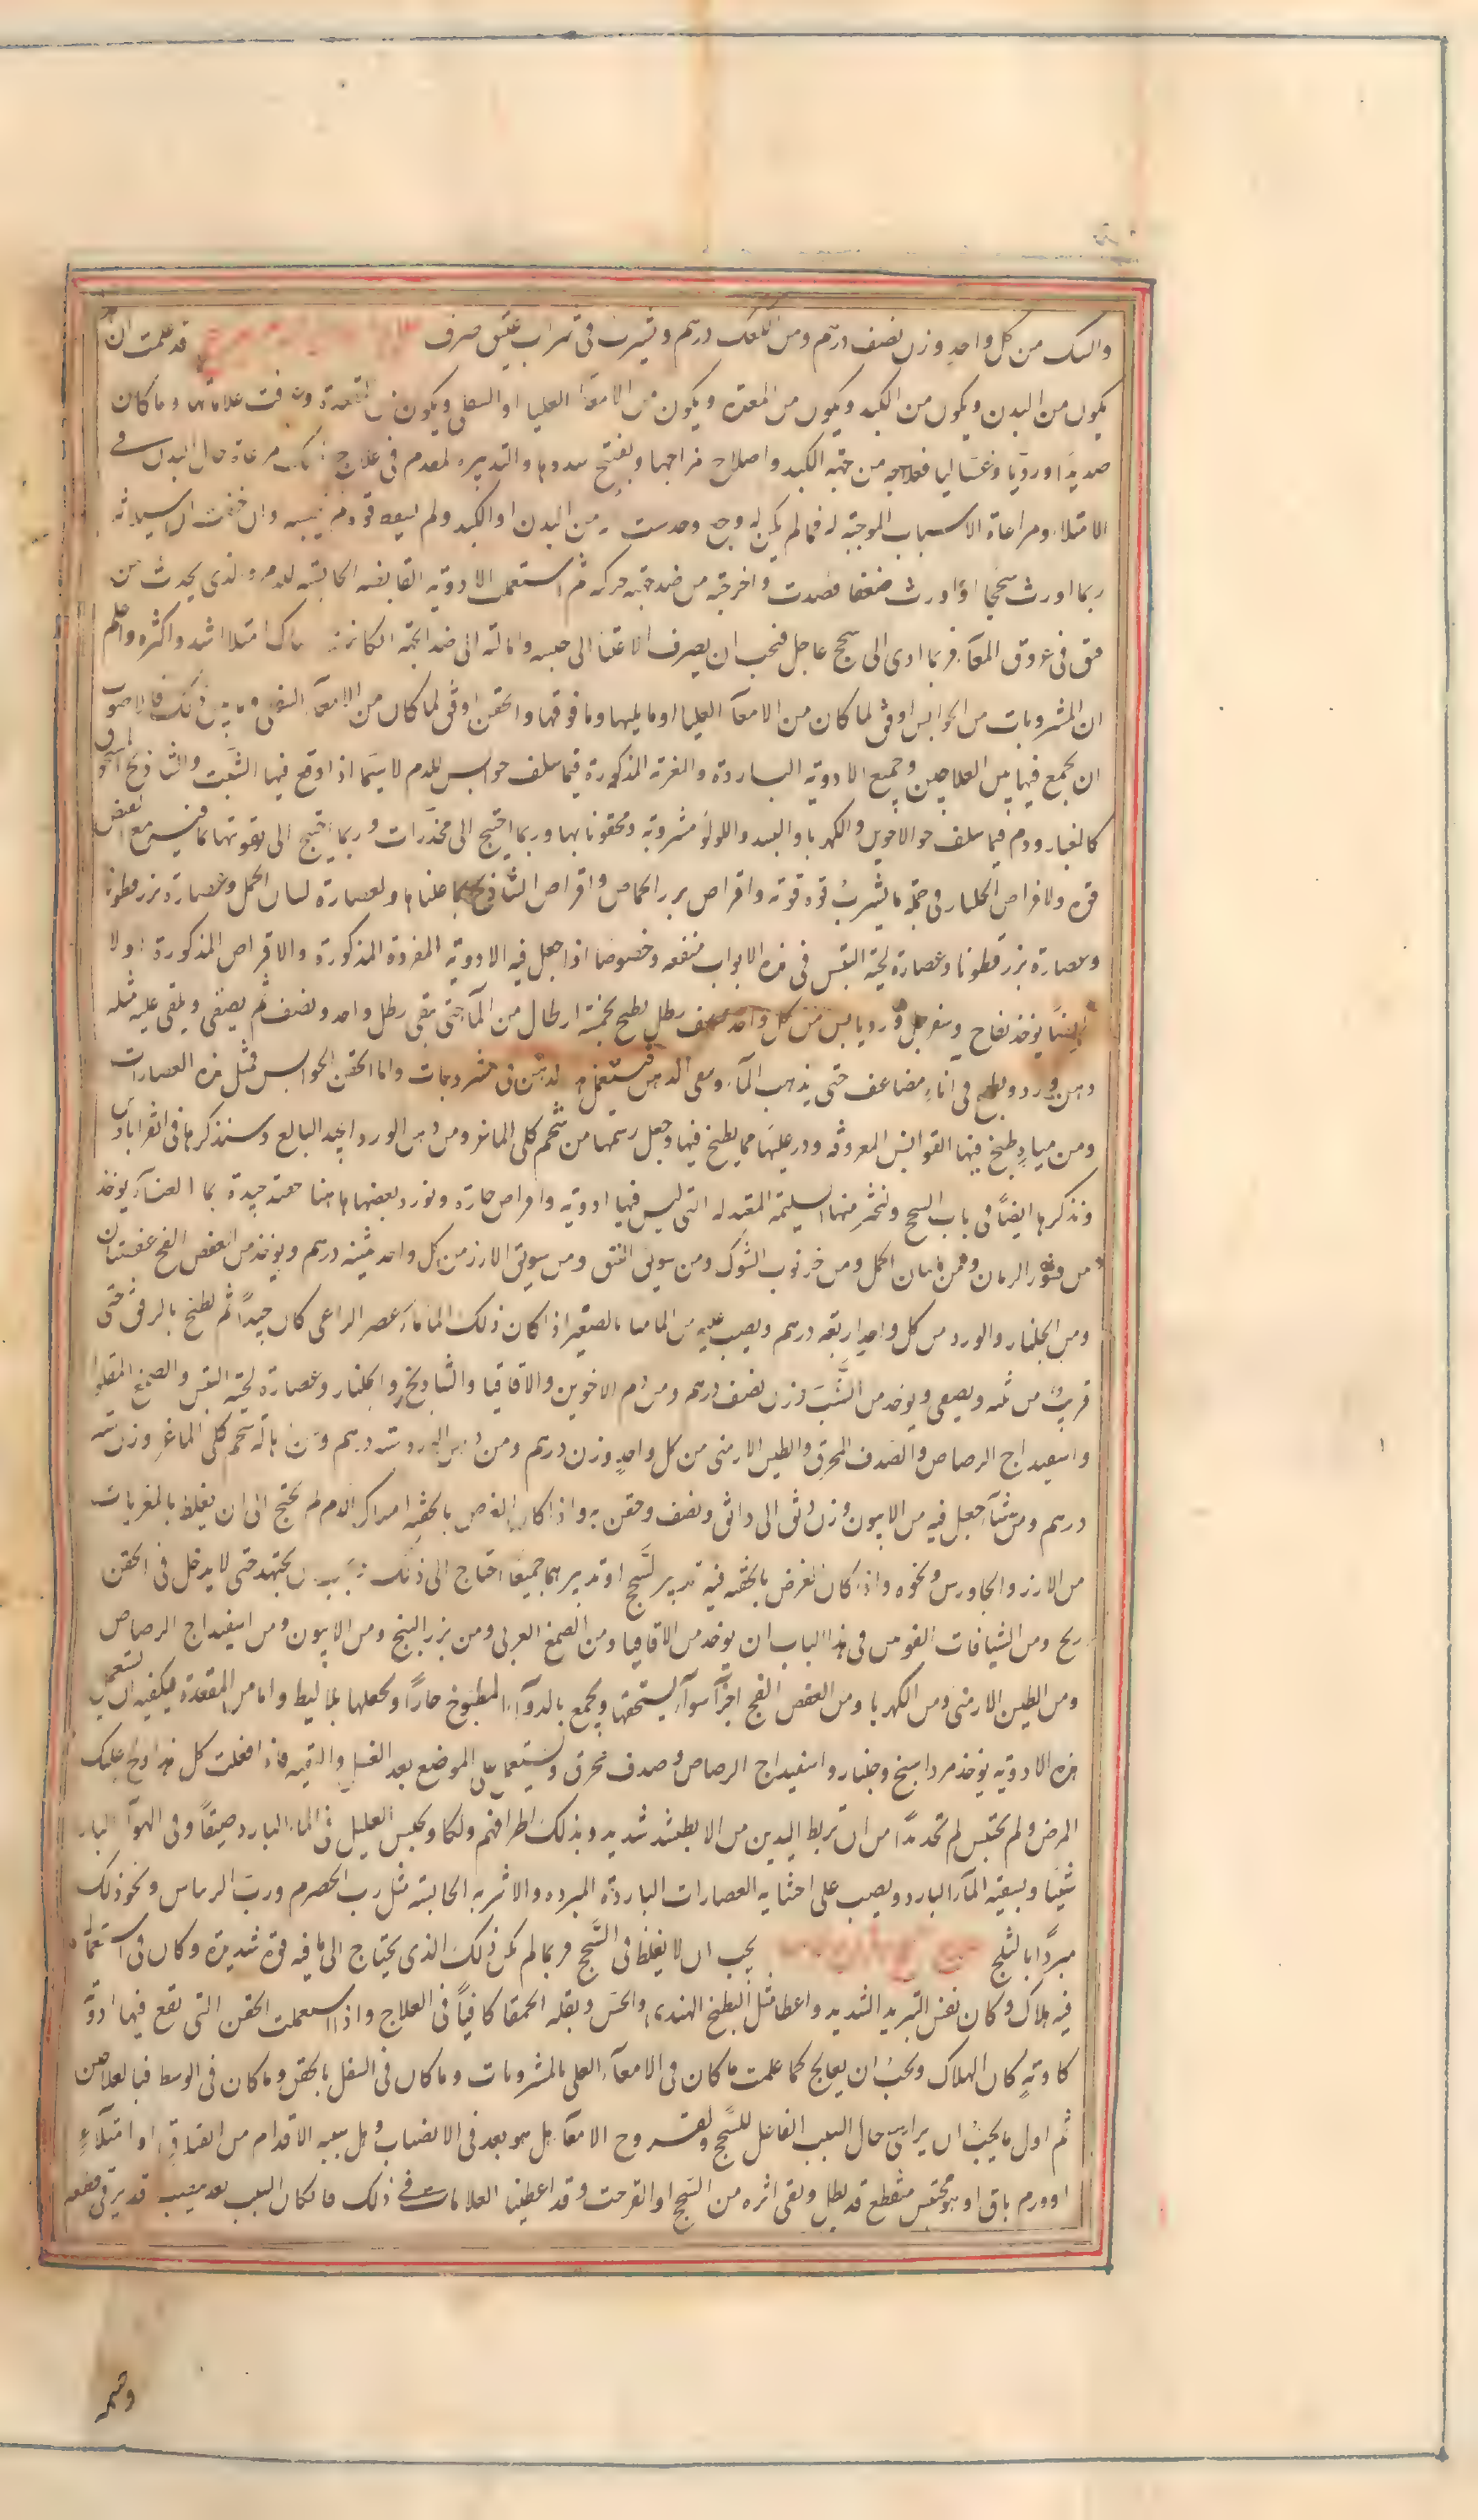 والسك من كل واحد وزن نصف درهم ومن اللك درهم ويشرب فى شراب عتيق صرف قد علمت ان
يكون من البدن ويكون من الكبد ويكون من المعدة ويكون من الامعآ العليا او السفلى ويكون من المقعدة وعرفت علاماتها وما كان
صديديا او رديا وغساليا فعلاجه من جهة الكبد واصلاح مزاجها وتفتيح سددها والتدبير المقدم فى علاج ذلك مراعاة حال البدن فى
الامتلاء ومراعاة الاسباب الموجبة له فما لم يكن له وجع وحدست انه من البدن او الكبد ولم تسقط قوة فلا تحبسه وان خفت ان اسهاله
ربما اورث سحجا او اورث ضعفا فصدت واخرجته من ضد جهة حركته ثم استعمل الادوية القابضة الحابسة للدم والذى يحدث من
فتق فى عروق المعآ فربما ادى الى سحج عاجل فيجب ان يصرف الاعتنا الى حبسه وامالته الى ضد الجهة ان كان هناك امتلا اشد واكثره واعلم
ان المشروبات من الحوابس اوفق لما كان من الامعآ العليا او ما يليها وما فوقها والحقن اوفق لما كان من الامعآ السفلى وما بين ذلك فالاصوب
ان يجمع فيها بين العلاجين وجميع الادوية الباردة والمغرية المذكورة فيما سلف حوابس للدم لاسيما اذا وقع فيها الشب والشاذنج المسحوق
كالغبار ودم فيما سلف حوالاخوين والكهربا والبسد واللؤلؤ مشروبة ومحقونا بها وربما احتيج الى مخدرات وربما احتيج الى تقويتها بما فيه مع القبض
قوة ولاقراص الجلنار فى جملة ما يشرب قوة قوية واقراص بزر الحماض واقراص الشاذنج بما علمناه ولعصارة لسان الحمل وعصارة بزر قطونا
وعصارة بزر قطونا وعصارة لحية التيس فى هذه الابواب منفعه وخصوصا اذا جعل فيه الادوية المفردة المذكورة والاقراص المذكورة اولا
ايضا يؤخذ تفاح وسفرجل وورد يابس من كل واحد نصف رطل يطبخ بخمسة ارطال من المآ حتى يبقى رطل واحد ونصف ثم يصفى ويلقى عليه مثله
دهن ورد ويطبخ فى اناء مضاعف حتى يذهب المآ ويبقى الدهن فيستعمل هذا الدهن فى مشروبات واما الحقن الحوابس فمثل هذه العصارات
ومن مياه طبخ فيها القوابض المعروفه وذر عليها مما يطبخ فيها وجعل دسمها من شحم كلى الماعز ومن دهن الورد الجيد البالغ وسنذكرها فى القراباذين
ونذكرها ايضا فى باب السحج ونختار منها السليمة المعتدلة التى ليس فيها ادوية واقراص حارة ونورد بعضها هاهنا حقنة جيدة بما الفناه يؤخذ
من قشور الرمان ومن لسان الحمل ومن خرنوب الشوك ومن سويق النبق ومن سويق الارز من كل واحد ثمينة درهم ويؤخذ من العفص الفج عفصتان
ومن الجلنار والورد من كل واحد اربعة درهم ويصب عليه من الما مسا بالصغير اذا كان ذلك الما مآ عصى الراعى كان جيدا ثم يطبخ بالرفق حتى
قريب من ثلثه ويصفى ويؤخذ من الشب وزن نصف درهم ومن دم الاخوين والاقاقيا والشاذنج والجلنار وعصارة لحية التيس والصمغ المقلوا
واسفيداج الرصاص والصدف المحرق والطين الارمنى من كل واحد وزن درهم ومن دهن الورد ستة درهم ومن اهالة شحم كلى الماعز وزن ستة
درهم ومن شآ جعل فيه من الافيون وزن دانق الى دانق ونصف وحقن به واذا كان الغرض بالحقنة امساك الدم لم يحتج الى ان يغلظ بالمغريات
من الارز والجاورس ونحوه واذا كان الغرض بالحقنه فيه تدبير السحج او تدبيرهما جميعا احتاج الى ذلك ويجب ان يجتهد حتى لا يدخل فى الحقن
ريح ومن الشيافات القوس فى هذا الباب ان يؤخذ من الاقاقيا ومن الصمغ العربى ومن بزر البنج ومن الافيون ومن اسفيداج الرصاص
ومن الطين الارمنى ومن الكهربا ومن العفص الفج اجزآ سوآ يستحقها ويجمع بالدوآ المطبوخ حارا ويجعلها بلاليط واما من المقعدة فيكفيه ان يستعمل
هذه الادوية يؤخذ مرداسنج وجلنار واسفيداج الرصاص وصدف محرق ويستعمل على الموضع بعد الغسل والتنقيه فاذا فعلت كل هذا والح عليك
المرض ولم يحتبس لم تجد بدا من ان تربط اليدين من الابط بشد شديد وبذلك اطرافهم ودلكا ويجلس العليل فى المآ البارد صيفا وفى الهوآ البارد
شتيا ويسقيه المآ البارد ويصب على احشايه العصارات الباردة المبرده والاشربه الحابسة مثل رب الحصرم ورب الريباس ونحو ذلك
مبردا بالثلج يجب ان لا يغلظ فى السحج فربما لم يكن ذلك الذى يحتاج الى ما فيه قوة شديدة وكان فى استعماله
فيه هلاك وكان نفس التبريد الشديد واعطا مثل البطيخ الهندى والخس وبقلة الحمقا كافيا فى العلاج واذا استعملت الحقن التى تقع فيها ادوية
كاوية كان الهلاك ويجب ان يعالج كما علمت ما كان فى الامعآ العلى بالمشروبات وما كان فى السفل بالحقن وما كان فى الوسط فبالعلاجين
ثم اول ما يجب ان يراعى حال السبب الفاعل للسحج ولقروح الامعآ هل هو بعد فى الانصباب وهل سببه الاقدام من انفتاق او امتلآء
او ورم باق او هو محتبس منقطع قد بطل وبقى اثره من السحج او القرحة وقد اعطينا العلامات فى ذلك فان كان السبب بعد ينصب قد يرفى قطعه
وحسمه